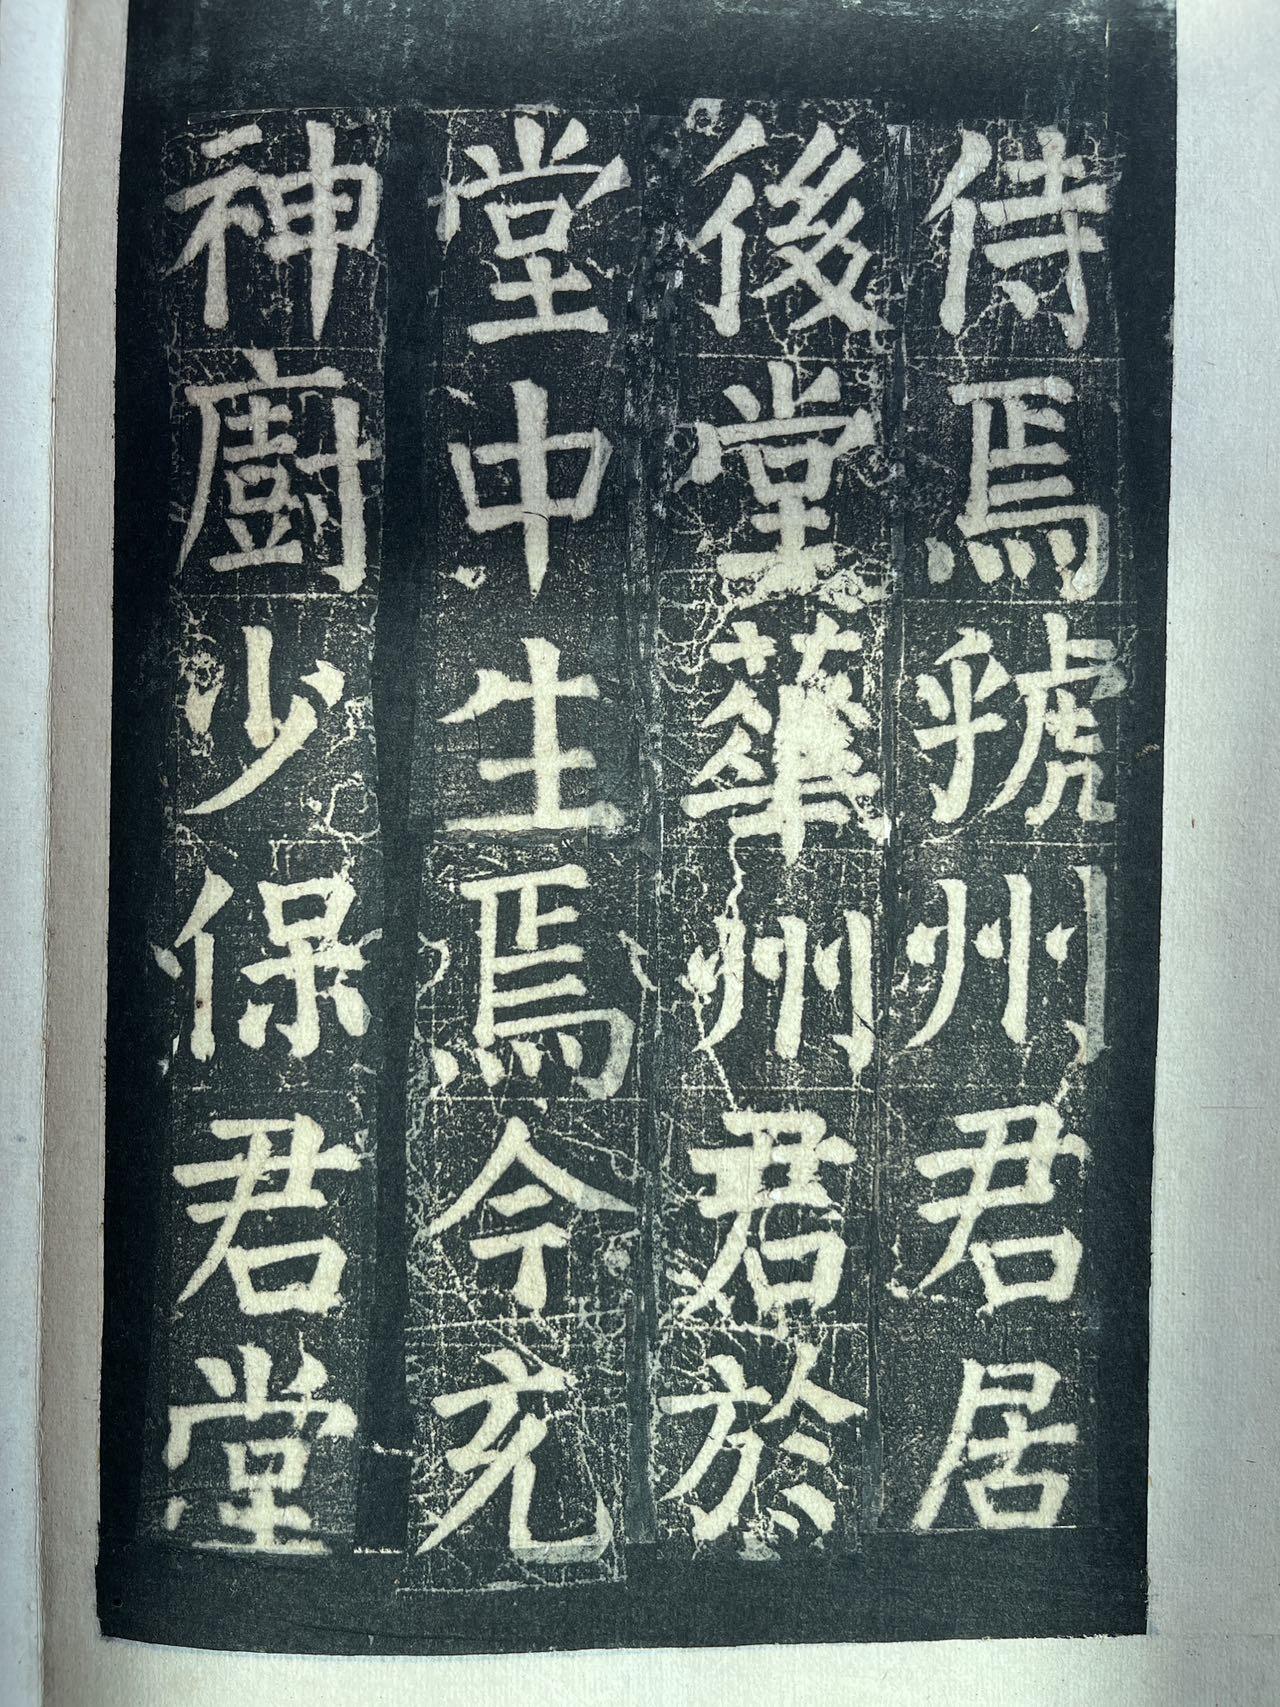 侍焉虢州君居
後堂華州君於
堂中生焉今充
神廚少保君堂